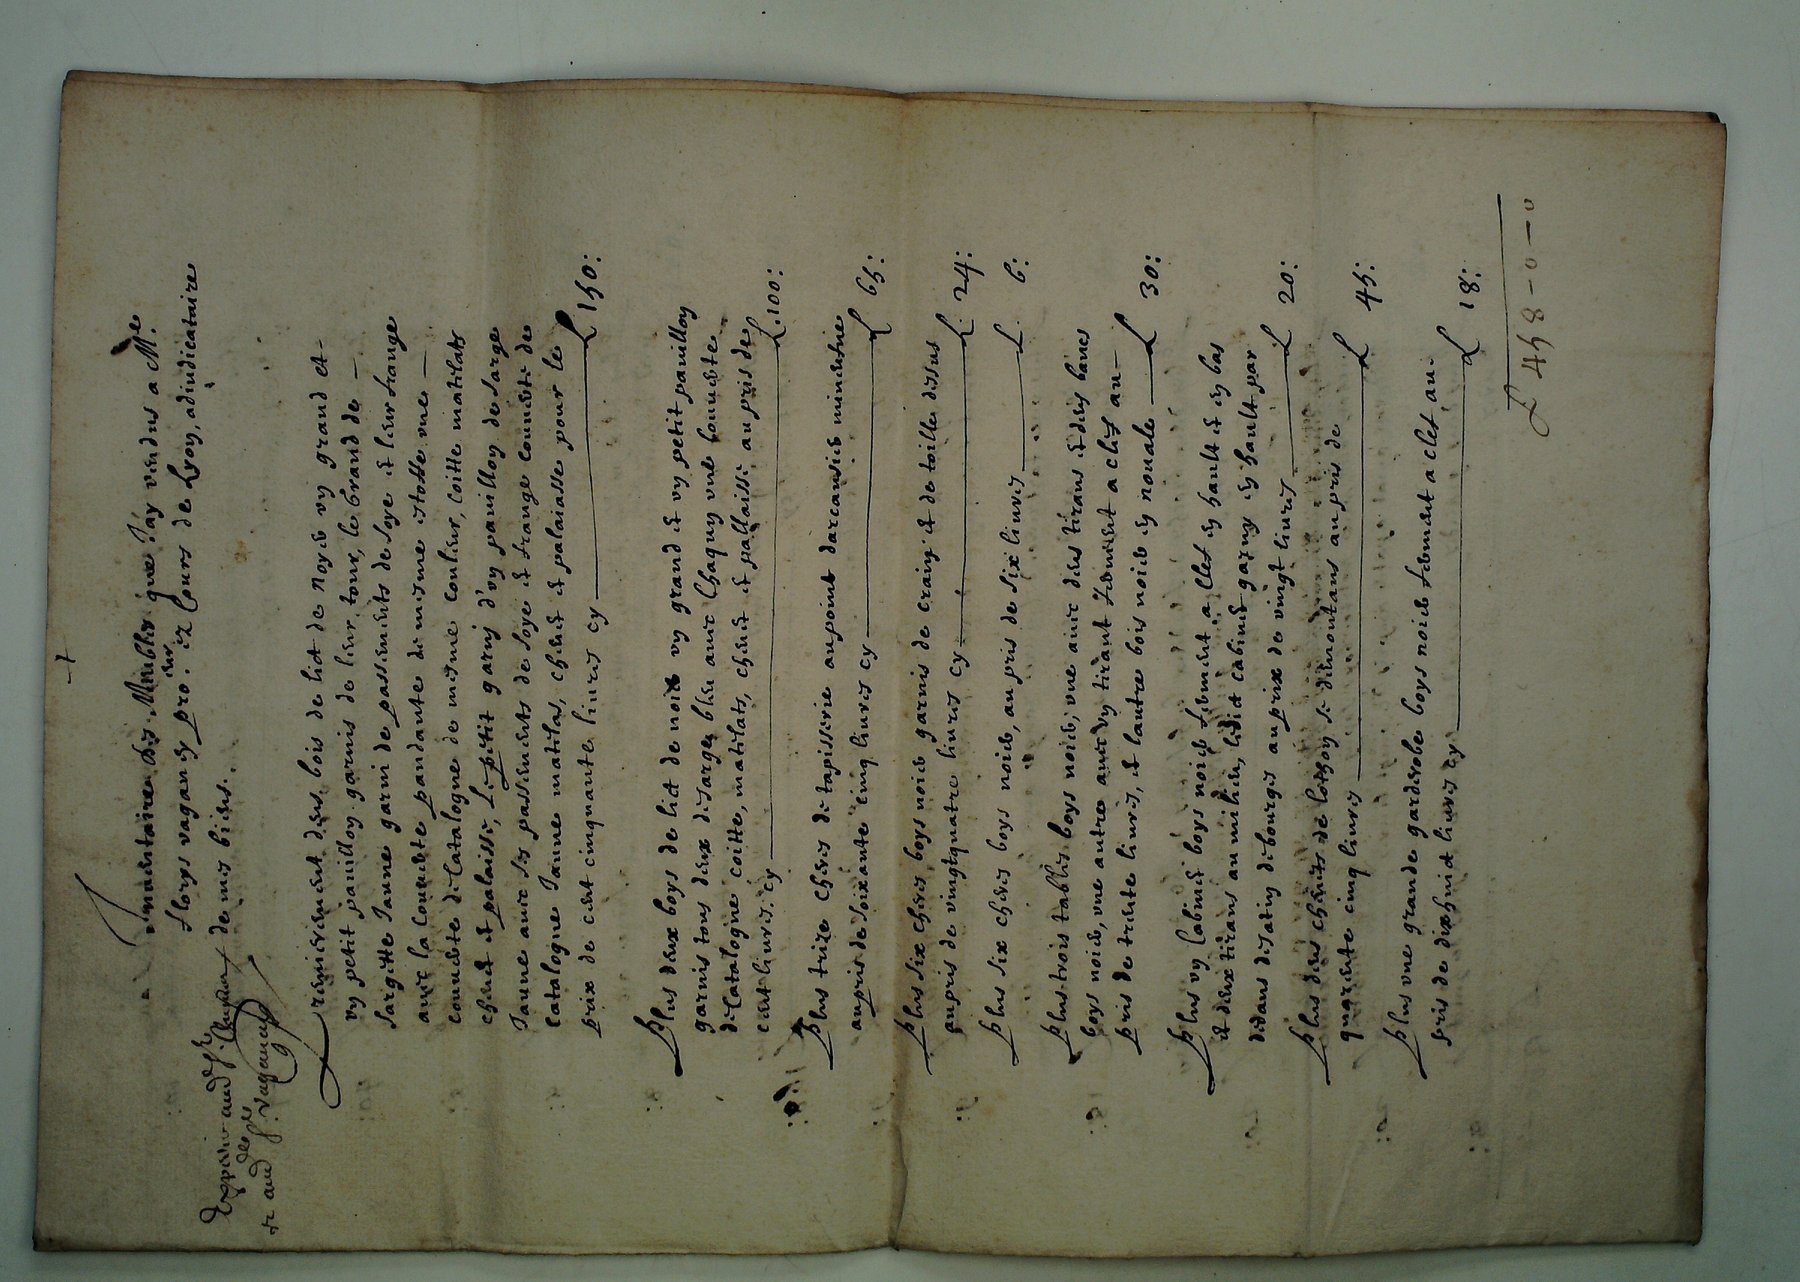 Inventaire des Meubles que J'ay vendus a Me.
Florys vaganey pro: eur ez Cours de Lyon, adiudicataire
de mes biens.
Expedie aud Sr.
et aud Sr. vaganey
Premierement deux bois de lict de Noyer vng grand et
vng petit pauillon garnis de leur tour, le Grand de
sargette Jaune garni de passements de soye et leur frange
auec la Couuerte pandante de mesme estoffe vne
couuerte de Catalogne de mesme couleur, coitte matelats
cheuet et palaisse, Le petit garny d'vng pauillon de sarge
Jaune auec ses passements de soye et frange couuerte de
Catalogne Jaune matelas, cheuet et palaiasse pour le
prix de cent cinquante liures cy L 150:
Plus deux boys de lict de noier vng grand et vng petit pauillon
garnis tous deux de sarge bleu auec Chaqung vne Couuerte
de Catalogne coitte, matelats, cheuet et pallaisse au pris de
cent liures. cy L. 100:
Plus treize cheres de tapisserie
au pris de soixante cinq liures cy L 65:
Plus six cheres boys noier garnis de craing et de toille dessus
au pris de vingtquatre liures cy L. 24:
Plus six cheres boys noier, au pris de six liures L. 6:
Plus trois tables boys noier, vne auec deux tirans et deux bancs
boys noier, vne autre auec vng tirant fermant a clef au
pris de trente liures, et lautre bois noier en nouale L 30:
Plus vng Cabinet boys noier fermant a clef en hault et en bas
et deux tirans au milieu, ledict cabinet garny en hault par
dedans de satin de bourges au prix de vingt liures L 20:
Plus deux chenets de Lothon se demontans au pris de
quarente cinq liures L 45:
Plus vne grande garderobe boys noier fermant a clef, au
pris de dixhuict liures cy L 18:
L 458-0-0